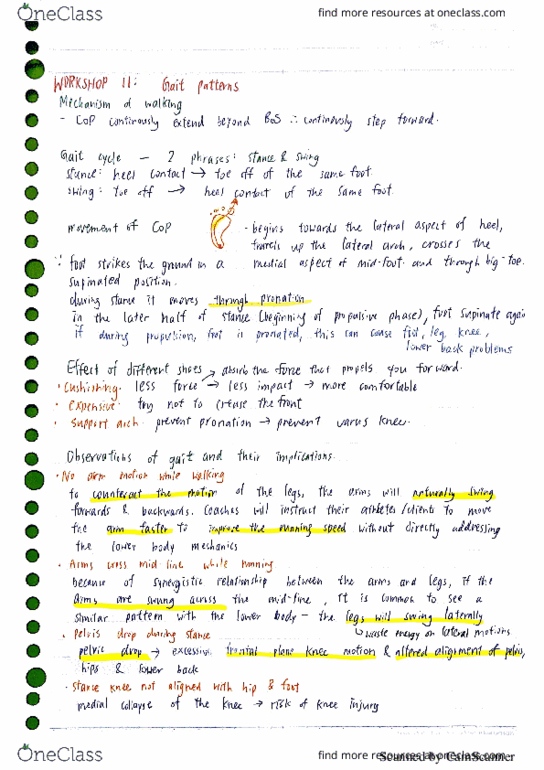 OneClass
find more resources at oneclass.com
WORKSHOP 11: Gait patterns
Mechanism of walking
- CoP continously extend beyond BoS ∴ continously step forward.
Gait cycle - 2 phrases: stance & swing
stance: heel contact → toe off of the same foot.
swing: toe off → heel contact of the same foot.
movement of CoP
- begins towards the lateral aspect of heel,
travels up the lateral arch, crosses the
medial aspect of mid-foot and through big-toe.
∵ foot strikes the ground in a
supinated position.
during stance it moves through pronation
in the later half of stance (beginning of propulsive phase), foot supinate again
if during propulsion, foot is pronated, this can cause foot, leg, knee,
lower back problems
Effect of different shoes
absorb the force that propels you forward.
• Cushioning: less force → less impact → more comfortable
• expensive: try not to crease the front
• Support arch: prevent pronation → prevent varus knee.
Observations of gait and their implications.
• No arm motion while walking
to counteract the motion of the legs, the arms will naturally swing
forwards & backwards. Coaches will instruct their athletes/clients to move
the arm faster to improve the running speed without directly addressing
the lower body mechanics
• Arms cross mid-line while running
because of synergistic relationship between the arms and legs, if the
arms are swung across the mid-line, it is common to see a
similar pattern with the lower body - the legs will swing laterally
↳ waste energy on lateral motions
• Pelvis drop during stance
pelvic drop → excessive frontal plane knee motion & altered alignment of pelvis,
hips & lower back
• Stance knee not aligned with hip & foot
medial collapse of the knee → risk of knee injury
OneClass
find more resources at oneclass.com
Scanned by CamScanner